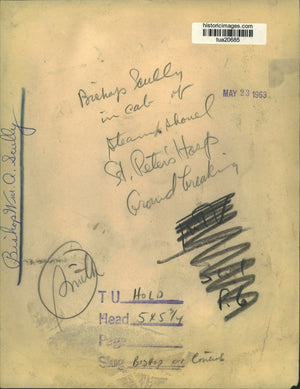 historicimages.com
tua20685
MAY 23 1963
Bishop Scully
in cab of
steam shovel
St. Peter's Hosp
Ground breaking
Bishop Wm. A. Scully
Smith
P. 6
T U HOLD
Head
Page
Slug Bishop on